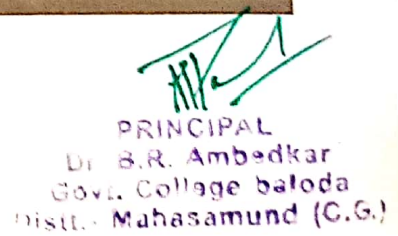 PRINCIPAL
Dr B.R. Ambedkar
Govt. College baloda
Distt.- Mahasamund (C.G.)